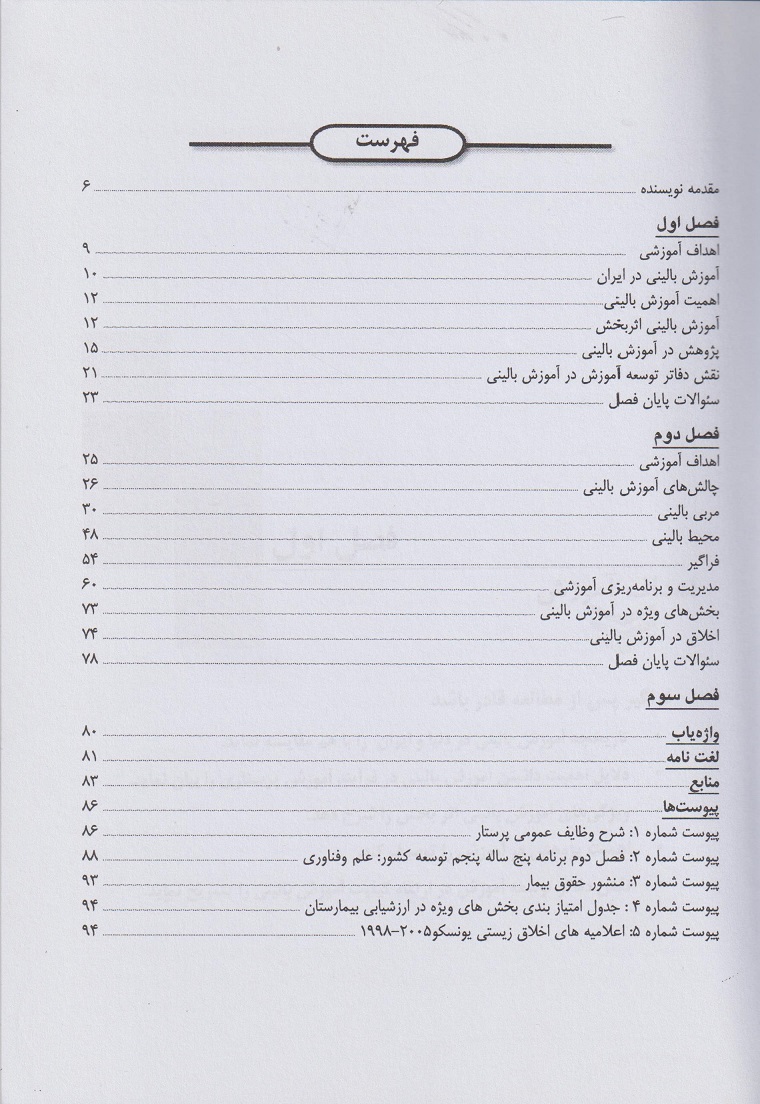 فهرست
مقدمه نویسنده ۶
فصل اول
اهداف آموزشی ۹
آموزش بالینی در ایران ۱۰
اهمیت آموزش بالینی ۱۲
آموزش بالینی اثربخش ۱۲
پژوهش در آموزش بالینی ۱۵
نقش دفاتر توسعه آموزش در آموزش بالینی ۲۱
سئوالات پایان فصل ۲۳
فصل دوم
اهداف آموزشی ۲۵
چالش‌های آموزش بالینی ۲۶
مربی بالینی ۳۰
محیط بالینی ۴۸
فراگیر ۵۴
مدیریت و برنامه‌ریزی آموزشی ۶۰
بخش‌های ویژه در آموزش بالینی ۷۳
اخلاق در آموزش بالینی ۷۴
سئوالات پایان فصل ۷۸
فصل سوم
واژه‌یاب ۸۰
لغت نامه ۸۱
منابع ۸۳
پیوست‌ها ۸۶
پیوست شماره ۱: شرح وظایف عمومی پرستار ۸۶
پیوست شماره ۲: فصل دوم برنامه پنج ساله پنجم توسعه کشور: علم وفناوری ۸۸
پیوست شماره ۳: منشور حقوق بیمار ۹۳
پیوست شماره ۴ : جدول امتیاز بندی بخش های ویژه در ارزشیابی بیمارستان ۹۴
پیوست شماره ۵: اعلامیه های اخلاق زیستی یونسکو۲۰۰۵-۱۹۹۸ ۹۴